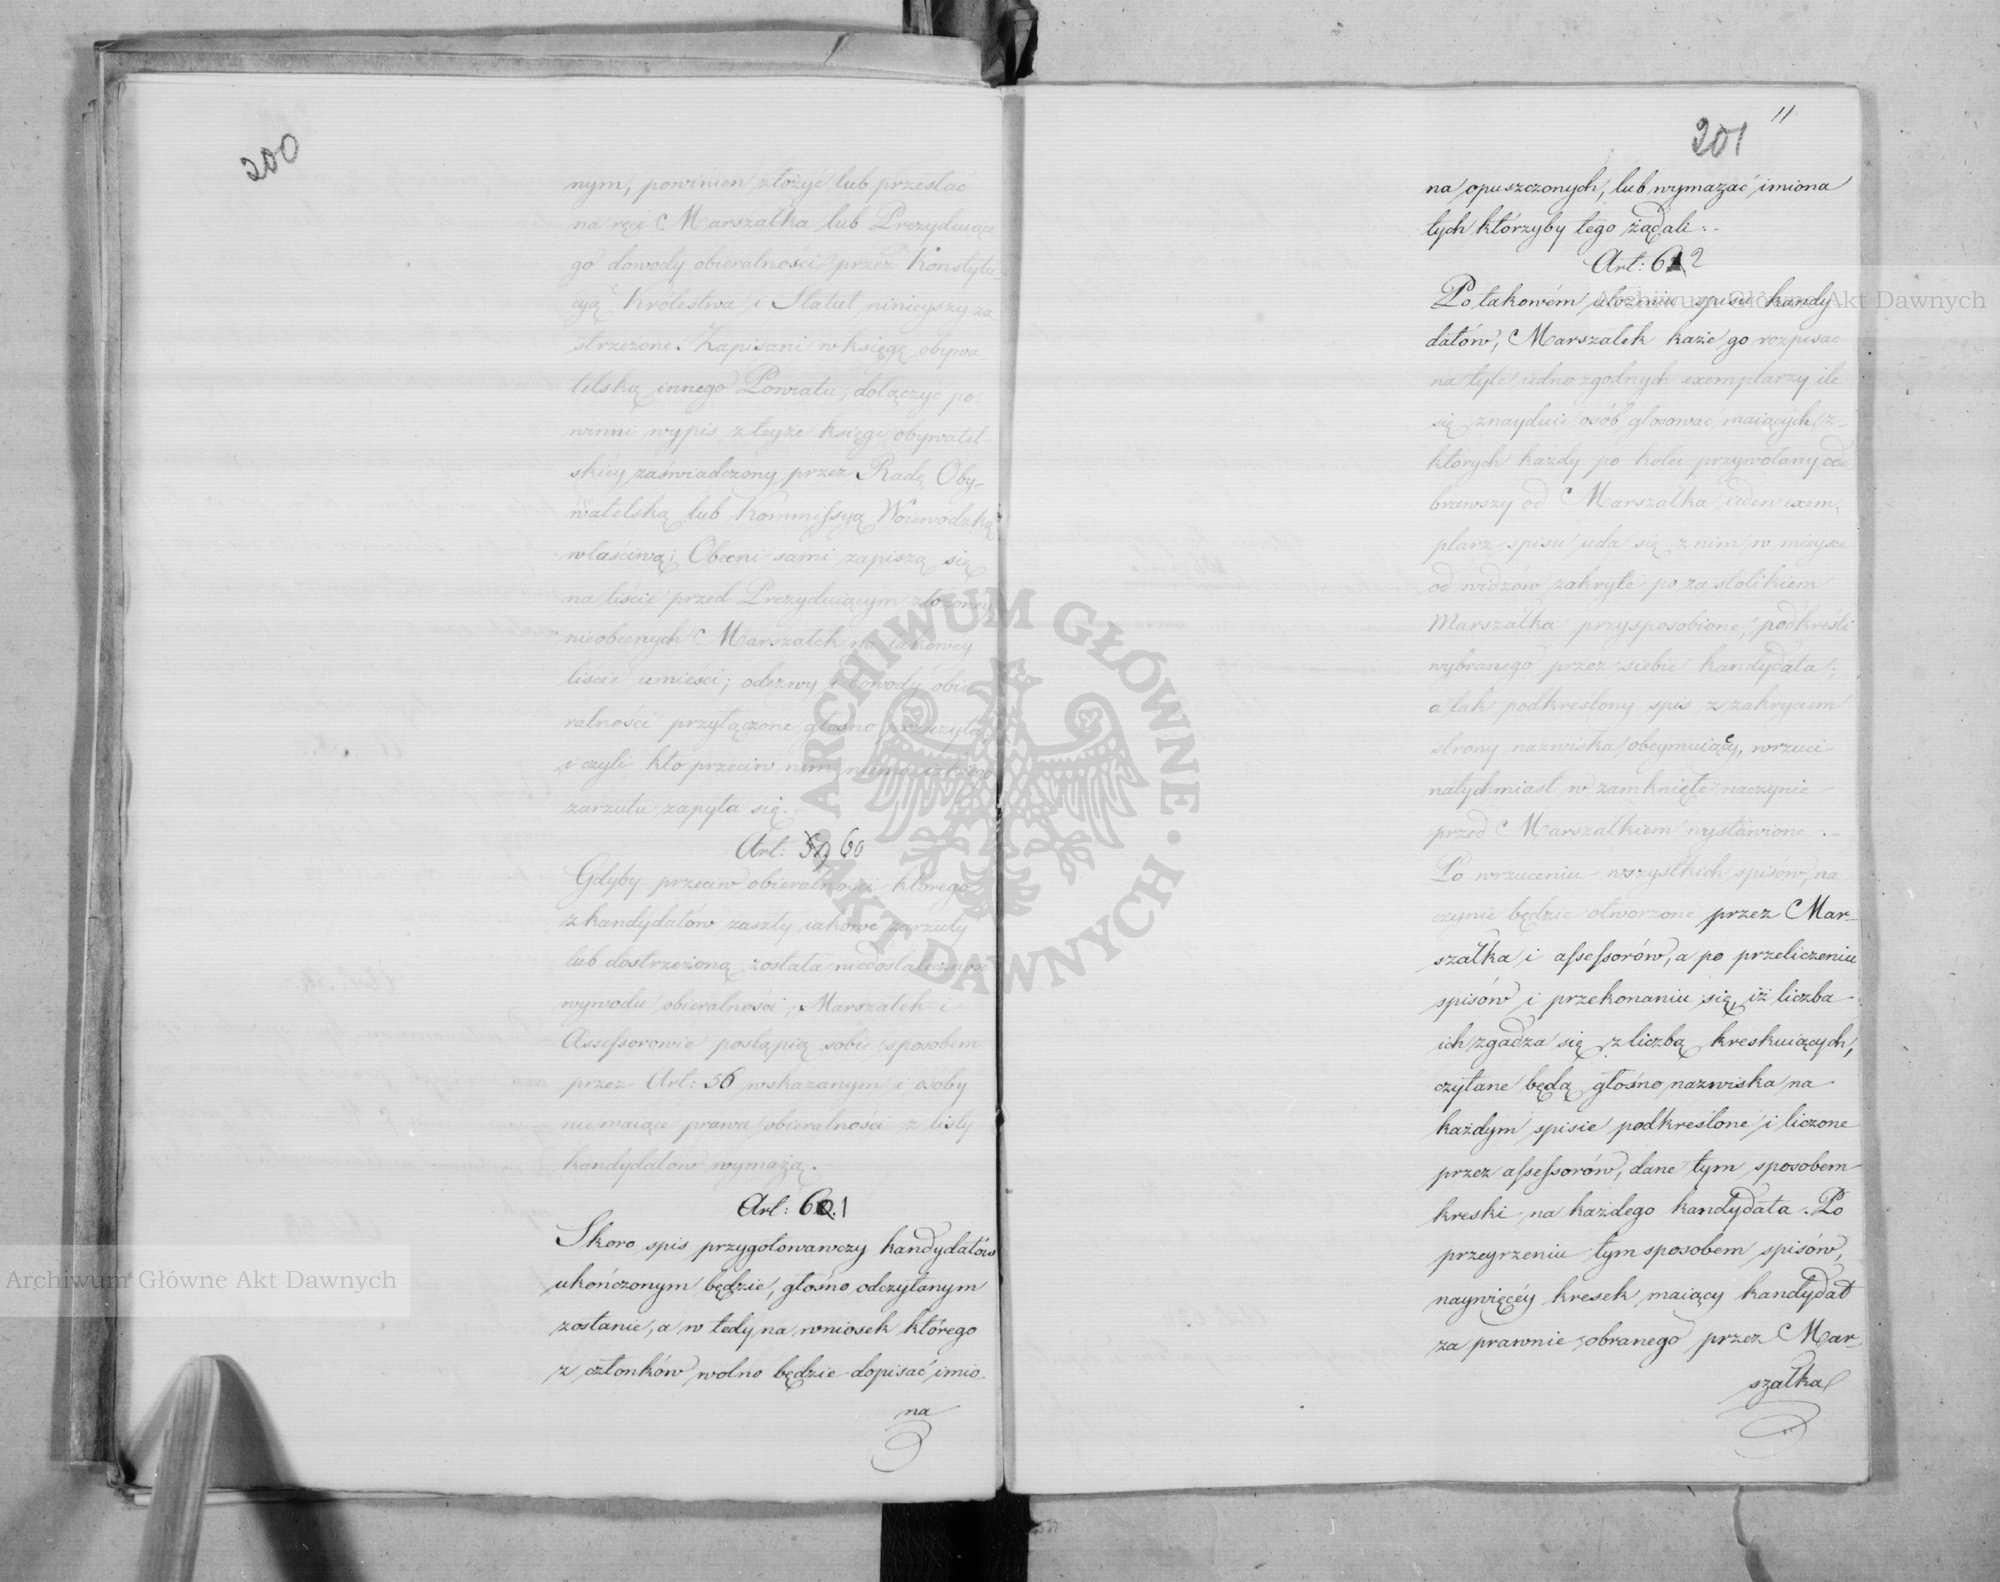 200
nym, powinien złożyć lub przesłać
na ręce Marszałka lub Prezyduiące
go dowody obieralności przez Konstytu
cyą Królestwa i Statut ninieyszy za
strzeżone. Zapisani w księgę obywa
telską innego Powiatu, dołączyć po:
winni wypis z teyże księgi obywatel-
skiéy zaświadczony przez Radę Oby-
watelską lub Kommissyą Woiewodzką
właściwą; Obecni sami zapiszą się
na liście przed Prezyduiącym złożonéy,
nieobecnych Marszałek na takowéy
liście umieści; odezwy i dowody obie
ralności przyłączone głośno przeczyta,
i czyli kto przeciw nim niema iakiego
zarzutu zapyta się.
Art: 59 60
Gdyby przeciw obieralności którego
z kandydatów zaszły iakowe zarzuty
lub dostrzeżoną została niedostateczność
wywodu obieralności, Marszałek i
Assessorowie postąpią sobie sposobem
przez Art: 56 wskazanym i osoby
niemaiące prawa obieralności z listy
kandydatów wymażą.
Art: 60.1
Skoro spis przygotowawczy kandydatów
ukończonym będzie, głośno odczytanym
zostanie, a w tedy na wniosek którego
z członków wolno będzie dopisać imio-
na
11
201
na opuszczonych, lub wymazać imiona
tych którzyby tego żądali.-
Art: 61 2
Po takowém ułożeniu spisu kandy
datów, Marszałek każe go rozpisać
na tyle iednozgodnych exemplarzy ile
się znayduie osób głosować maiących, z
których każdy po kolei przywołany ode
brawszy od Marszałka ieden exem,
plarz spisu uda się z nim w mieysce
od widzów zakryte po za stolikiem
Marszałka przysposobione, podkreśli
wybranego przez siebie kandydata;
a tak podkreślony spis z zakryciem
strony nazwiska obeymuiącéy, wrzuci
natychmiast w zamknięte naczynie
przed Marszałkiem wystawione.-
Po wrzuceniu wszystkich spisów, na
czynie będzie otworzone przez Mar-
szałka i assessorów, a po przeliczeniu
spisów i przekonaniu się, iż liczba
ich zgadza się z liczbą kreskuiących,
czytane będą głośno nazwiska na
każdym spisie podkreślone i liczone
przez assessorów, dane tym sposobem
kreski na każdego kandydata. Po
przeyrzeniu tym sposobem spisów,
naywięcéy kresek maiący kandydat
za prawnie obranego przez Mar-
szałka
Archiwum Główne Akt Dawnych
Archiwum Główne Akt Dawnych
ARCHIWUM GŁÓWNE · AKT DAWNYCH ·